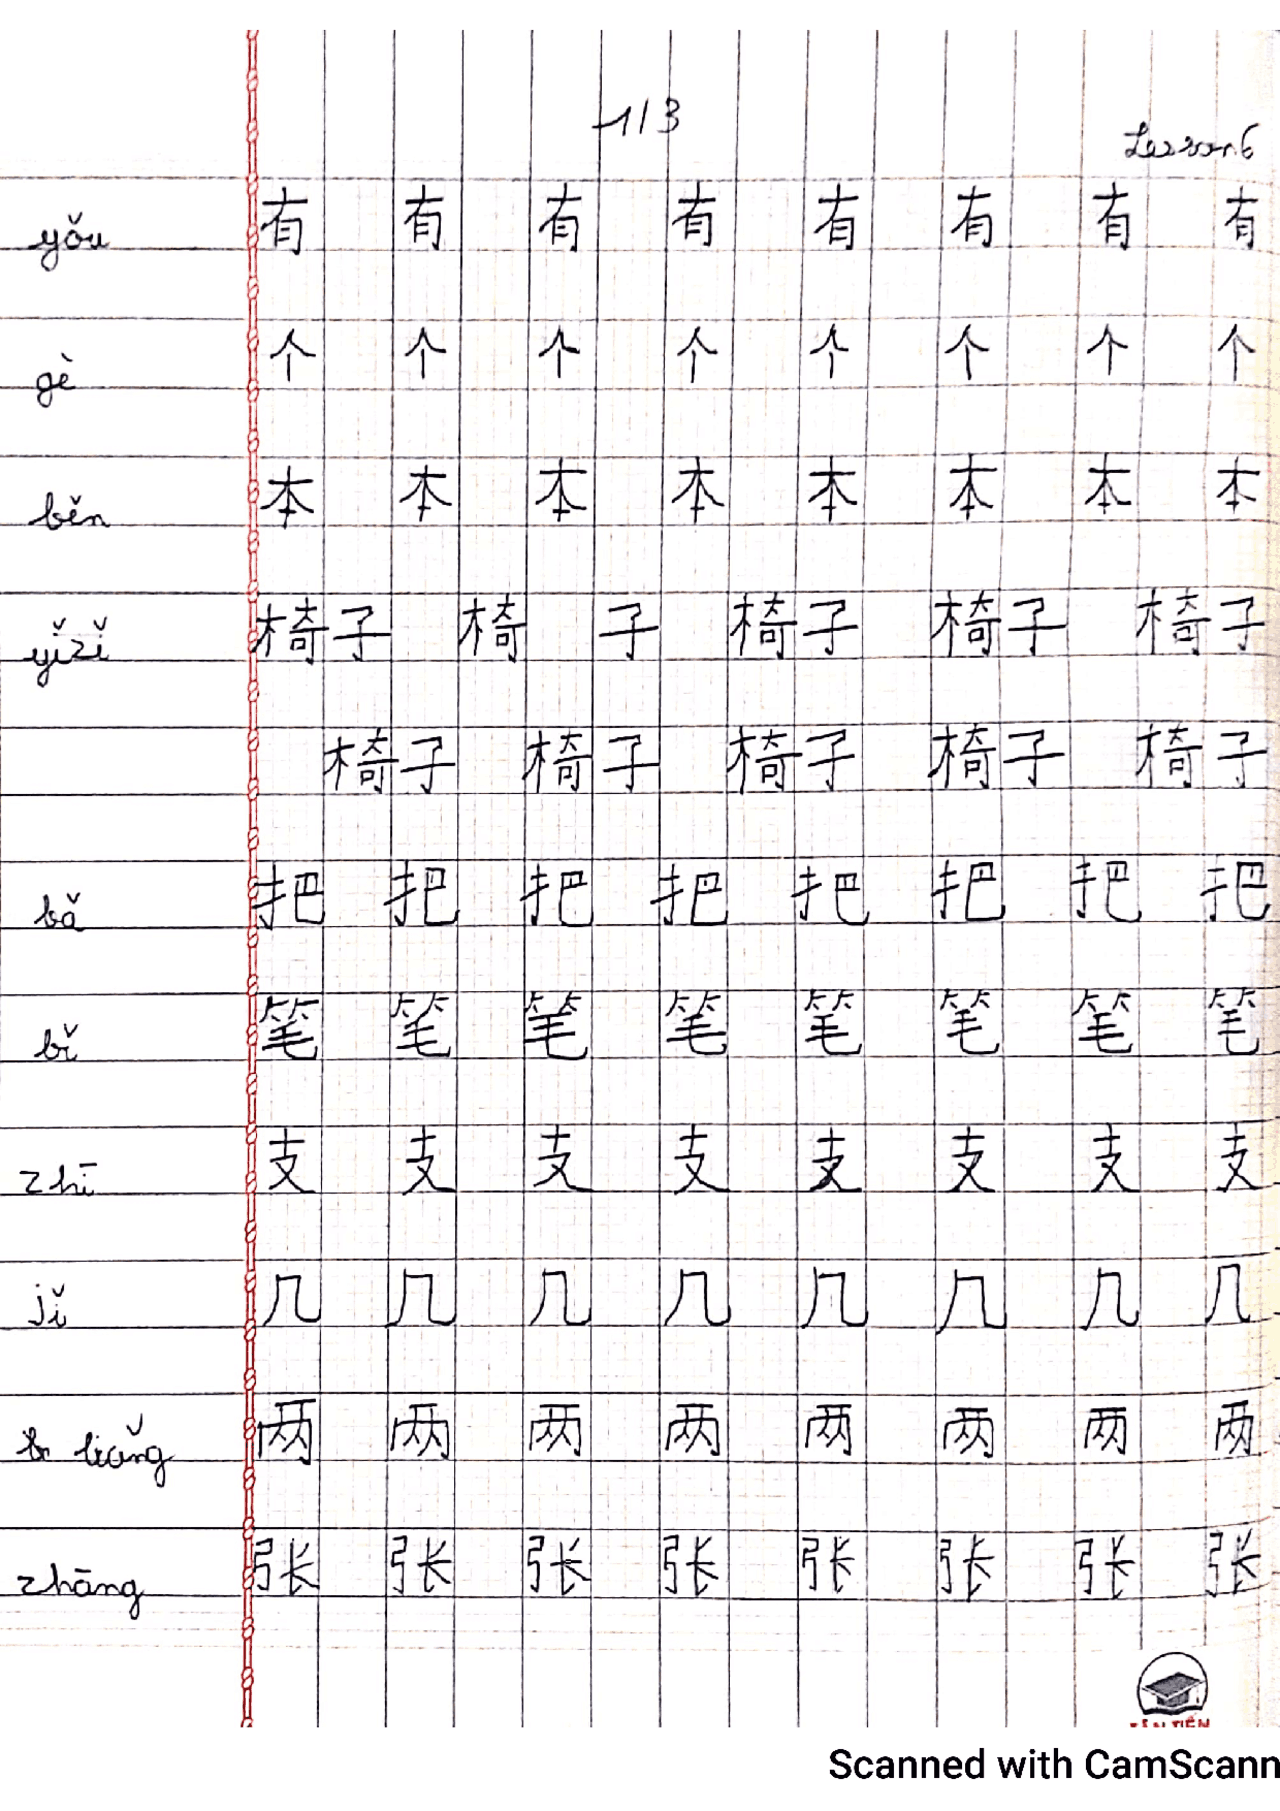 1/3
Lesson 6
yǒu 有 有 有 有 有 有 有 有
gè 个 个 个 个 个 个 个 个
běn 本 本 本 本 本 本 本 本
yǐzǐ 椅子 椅子 椅子 椅子 椅子
椅子 椅子 椅子 椅子 椅子
bǎ 把 把 把 把 把 把 把 把
bǐ 笔 笔 笔 笔 笔 笔 笔 笔
zhī 支 支 支 支 支 支 支 支
jǐ 几 几 几 几 几 几 几 几
liǎng 两 两 两 两 两 两 两 两
zhāng 张 张 张 张 张 张 张 张
Scanned with CamScann